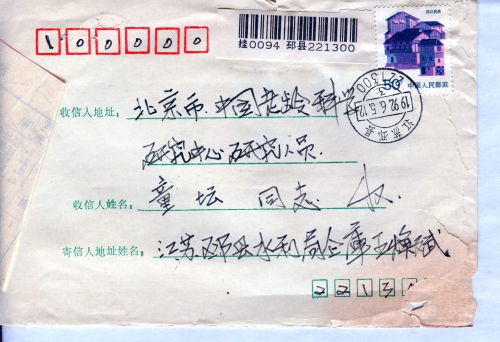 100000
挂0094 邳县221300
50 中国人民邮政
221300
1992.6.5.12
江苏邳县
收信人地址: 北京市中国老龄科学
研究中心研究人员
收信人姓名: 童坛 同志 收
寄信人地址姓名: 江苏邳县水利局仝庫王焕斌
2213